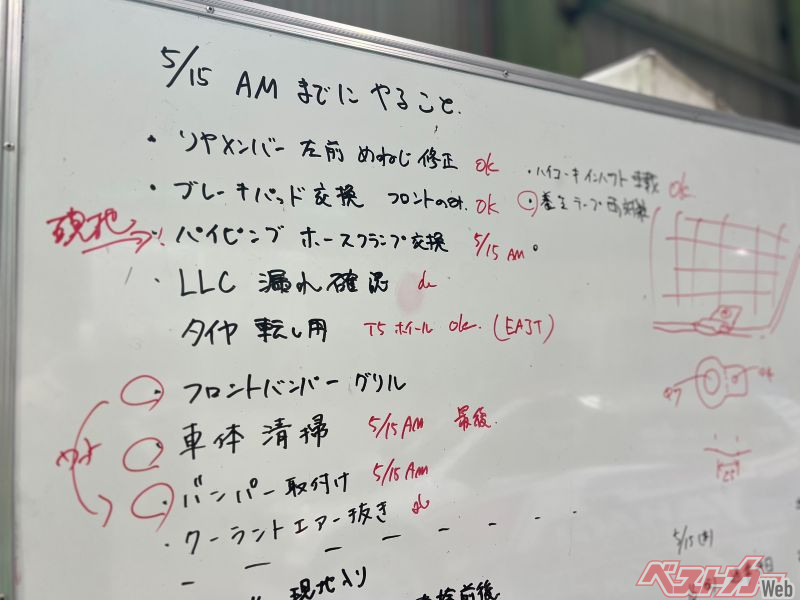 5/15 AM までに やること.
・リヤメンバー 左前 めねじ 修正 ok
・ブレーキパッド 交換 フロントのみ. OK
現地 パイピング ホースクランプ交換 5/15 AM
・LLC 漏れ 確認 ok
タイヤ 転し用 T5 ホイール ok. (EAST)
フロントバンパー グリル
車体 清掃 5/15 AM 最後.
・バンパー 取付け 5/15 AM
・クーラントエアー抜き ok
現地入り
前後
・ハイコーキ インパクト ok
ランプ
47
44
5/15
ベストカーWeb